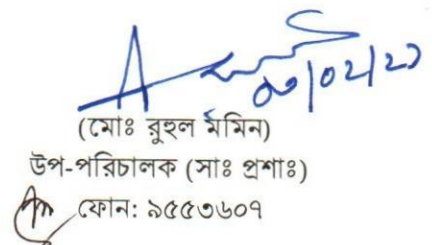 ০৩/০২/২১
(মোঃ রুহুল মমিন)
উপ-পরিচালক (সাঃ প্রশাঃ)
ফোন: ৯৫৫৩৬০৭